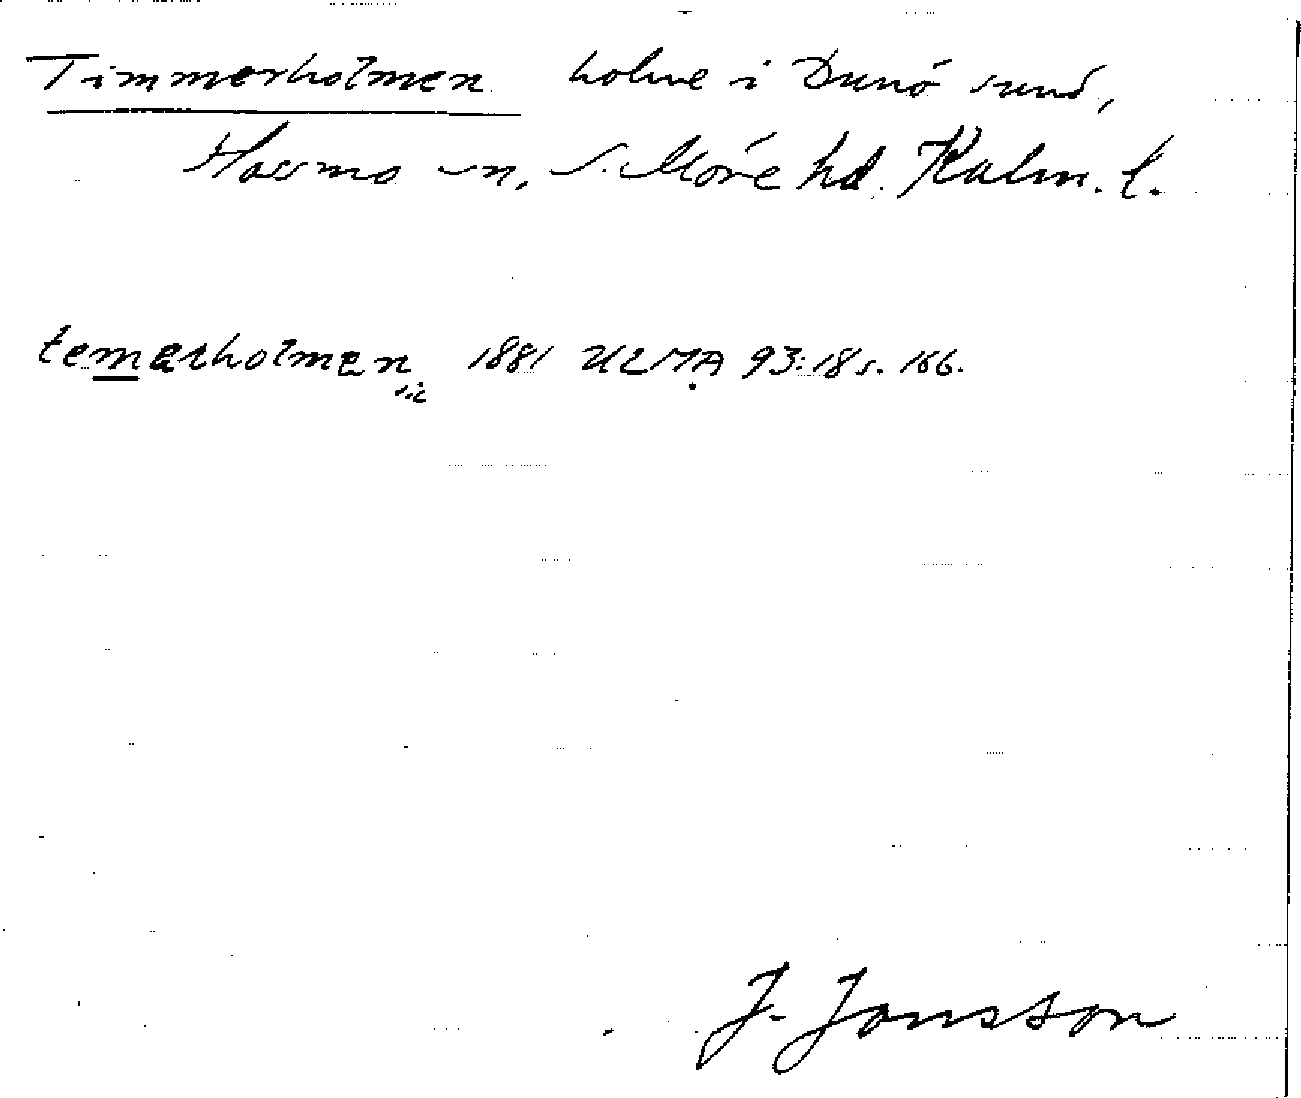 Timmerholmen holme i Dunö sund,
Hossmo sn, S. Möre hd. Kalm. l.
temerholmen 1881 ULMA 93:18 s. 166.
sic
J. Jonsson